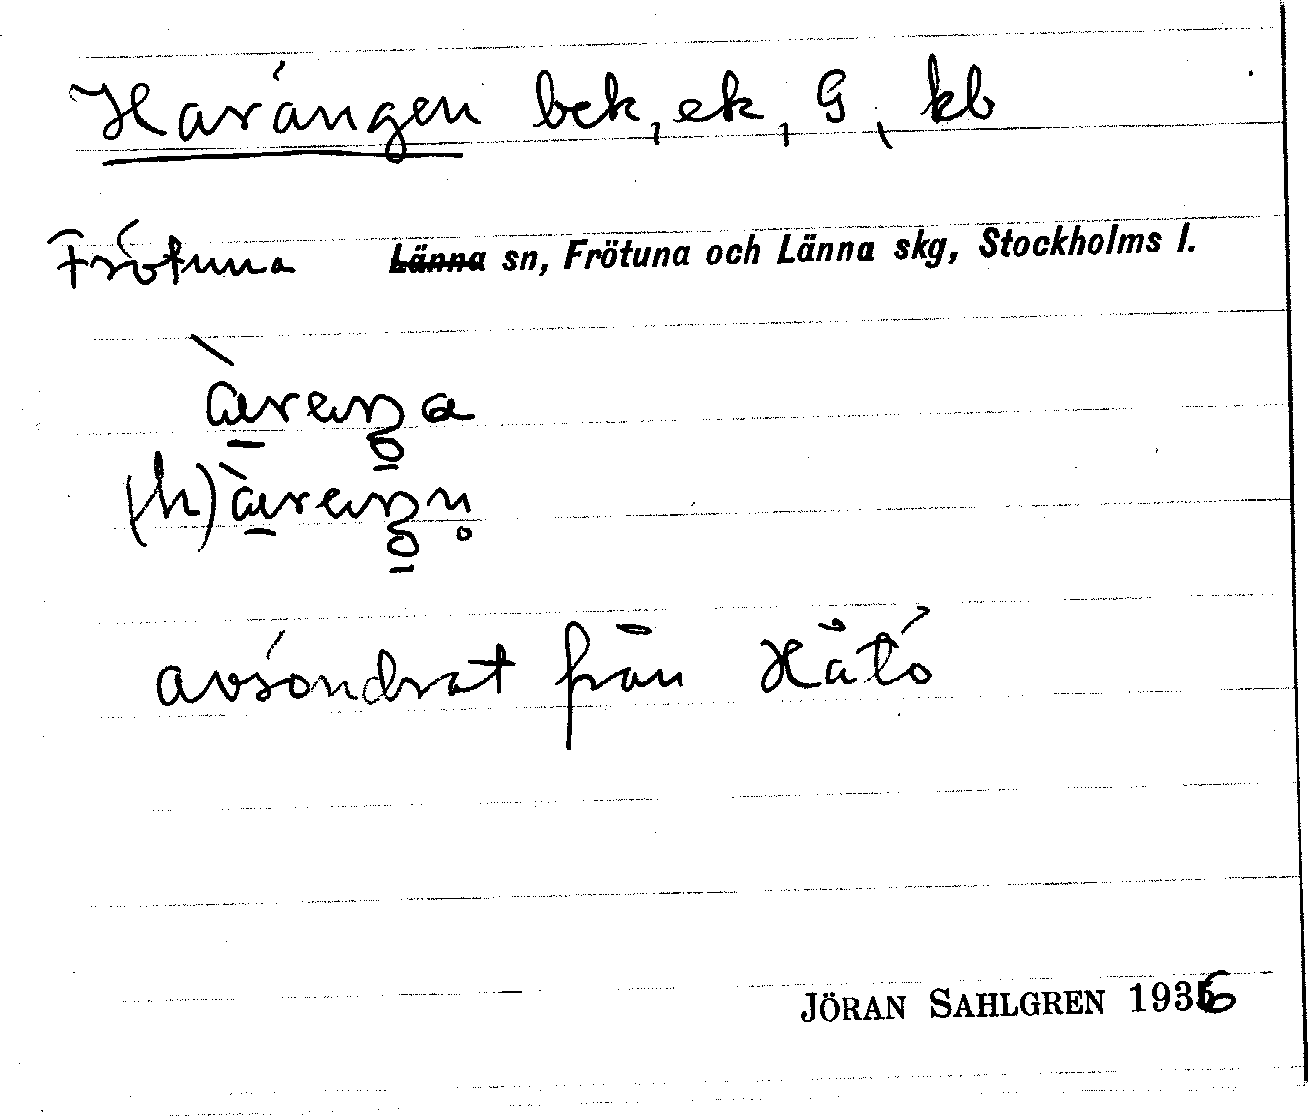 Harängen bek, ek, G, kb
Frötuna Länna sn, Frötuna och Länna skg, Stockholms l.
avsöndrat från Hätö
JÖRAN SAHLGREN 1936